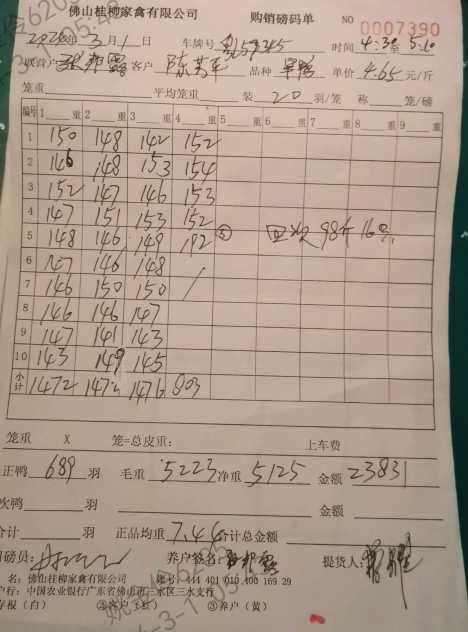 佛山桂柳家禽有限公司 购销磅码单 NO 0007390
2026年3月1日 车牌号 59345 时间 4:30至5:10
收购户 客户 品种 单价 4.65元/斤
笼重 平均笼重 装20羽/笼 称 笼/磅
编号 1 重 2 重 3 重 4 重 5 重 6 重 7 重 8 重 9 重
1 150 148 142 152
2 146 148 153 154
3 152 147 146 153
4 147 151 153 152
5 148 146 149 192 ⑤ 98斤 16
6 147 146 148
7 146 150 150 /
8 146 146 147
9 147 141 143
10 143 149 145
小计 1472 1472 1476 803
笼重 X 笼=总皮重: 上车费
正鸭 689 羽 毛重 5223 净重 5125 金额 23831
次鸭 羽 金额
合计 羽 正品均重 7.44 合计总金额
司磅员: 养户签名: 提货人:
名:佛山桂柳家禽有限公司 账号:444 401 010 400 169 29
户行:中国农业银行广东省佛山市三水区三水支行
存根(白) ②客户(红) ③养户(黄)